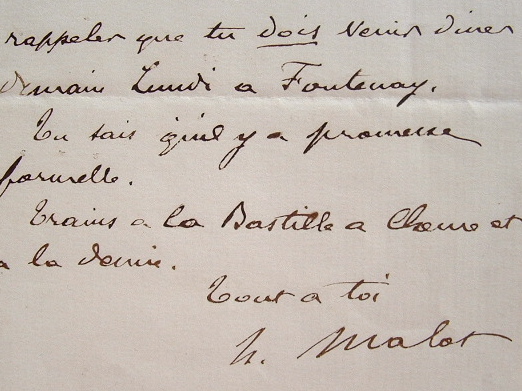 rappeler que tu dois venir diner
demain Lundi a Fontenay.
Tu sais qu'il y a promesse
formelle.
Trains a la Bastille a l'heure et
a la demie.
Tout a toi
H. Malot